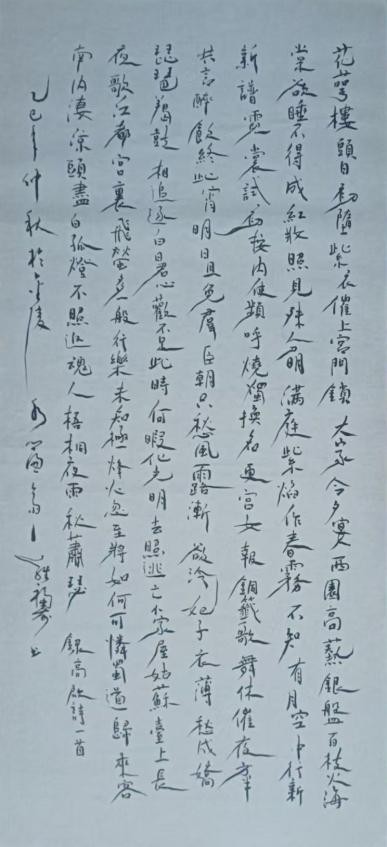 花萼樓頭日初墮紫衣催上宮門鎖大家今夕宴西園高爇銀盤百枝火海
棠欲睡不得成紅妝照見殊分明滿庭紫焰作春霧不知有月空中行新
新譜霓裳試初按內使頻呼燒燭換知更宮女報銅籤歌舞休催夜方半
共言醉飲終此宵明日且免群臣朝只愁風露漸欲冷妃子衣薄愁成嬌
琵琶羯鼓相追逐白日君心歡不足此時何暇化光明去照逃亡小家屋姑蘇臺上長
夜歌江都宮裏飛螢多一般行樂未知極烽火忽至將如何可憐蜀道歸來客
南內淒涼頭盡白孤燈不照返魂人梧桐夜雨秋蕭瑟 錄高啟詩一首
乙巳年仲秋於金陵